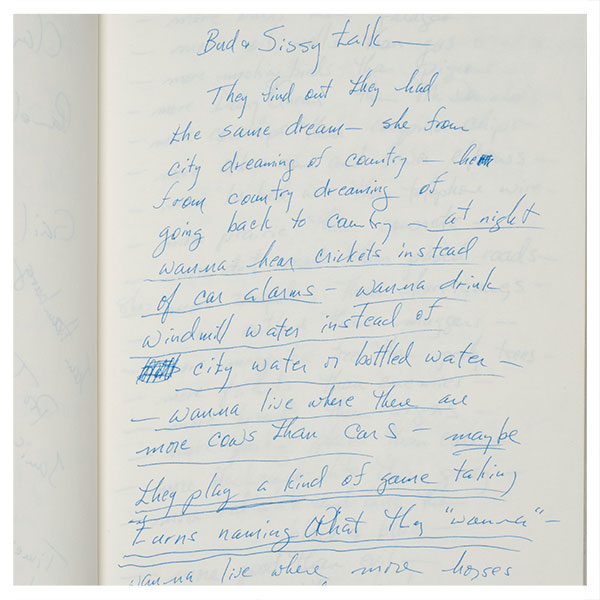 Bud & Sissy talk —
They find out they had
the same dream — she from
city dreaming of country — he
from country dreaming of
going back to country — at night
wanna hear crickets instead
of car alarms — wanna drink
windmill water instead of
city water or bottled water —
— wanna live where there are
more cows than cars — maybe
they play a kind of game taking
turns naming what they "wanna" —
wanna live where more horses